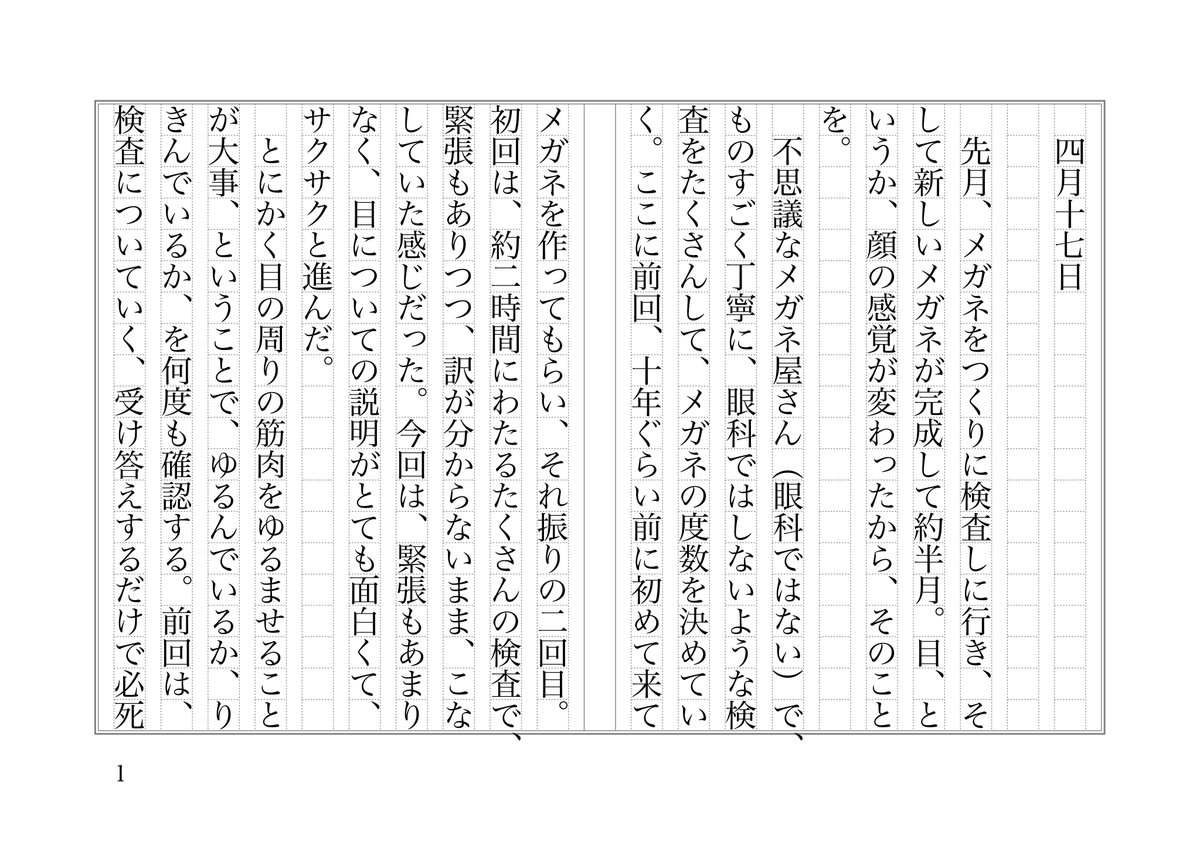 四月十七日
先月、メガネをつくりに検査しに行き、そ
して新しいメガネが完成して約半月。目、と
いうか、顔の感覚が変わったから、そのこと
を。
不思議なメガネ屋さん（眼科ではない）で、
ものすごく丁寧に、眼科ではしないような検
査をたくさんして、メガネの度数を決めてい
く。ここに前回、十年ぐらい前に初めて来て
メガネを作ってもらい、それ振りの二回目。
初回は、約二時間にわたるたくさんの検査で、
緊張もありつつ、訳が分からないまま、こな
していた感じだった。今回は、緊張もあまり
なく、目についての説明がとても面白くて、
サクサクと進んだ。
とにかく目の周りの筋肉をゆるませること
が大事、ということで、ゆるんでいるか、り
きんでいるか、を何度も確認する。前回は、
検査についていく、受け答えするだけで必死
1